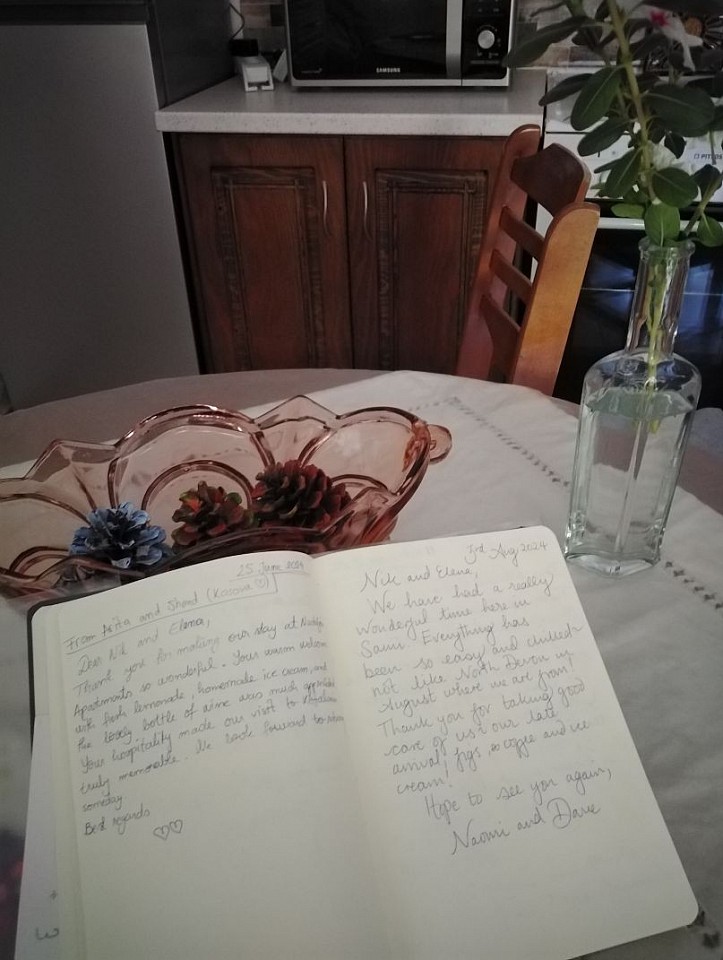 SAMSUNG
25 June 2024
From Arita and Shend (Kosova ♡)
Dear Nik and Elena,
Thank you for making our stay at
Apartments so wonderful. Your warm welcome
with fresh lemonade, homemade ice cream, and
the lovely bottle of wine was much appreciated
Your hospitality made our visit to
truly memorable. We look forward to
someday
Best regards
♡♡
3rd Aug 2024
Nik and Elena,
We have had a really
wonderful time here in
Everything has
been so easy and chilled-
not like North Devon in
August where we are from!
Thank you for taking good
care of us & our late
arrival! figs, coffee and ice
cream!
Hope to see you again,
Naomi and Dave